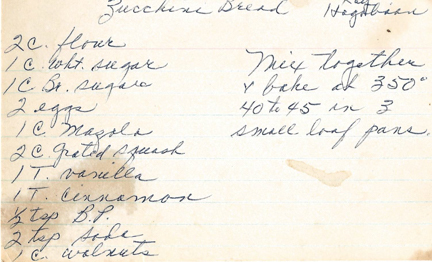 Zucchini Bread
2 C. flour
1 C. wht. sugar
1 C. Br. sugar
2 eggs
1 C. Mazola
2 C. grated squash
1 T. vanilla
1 T. cinnamon
½ tsp B.P.
2 tsp soda
1 C. walnuts
Mix together
& bake at 350°
40 to 45 in 3
small loaf pans.